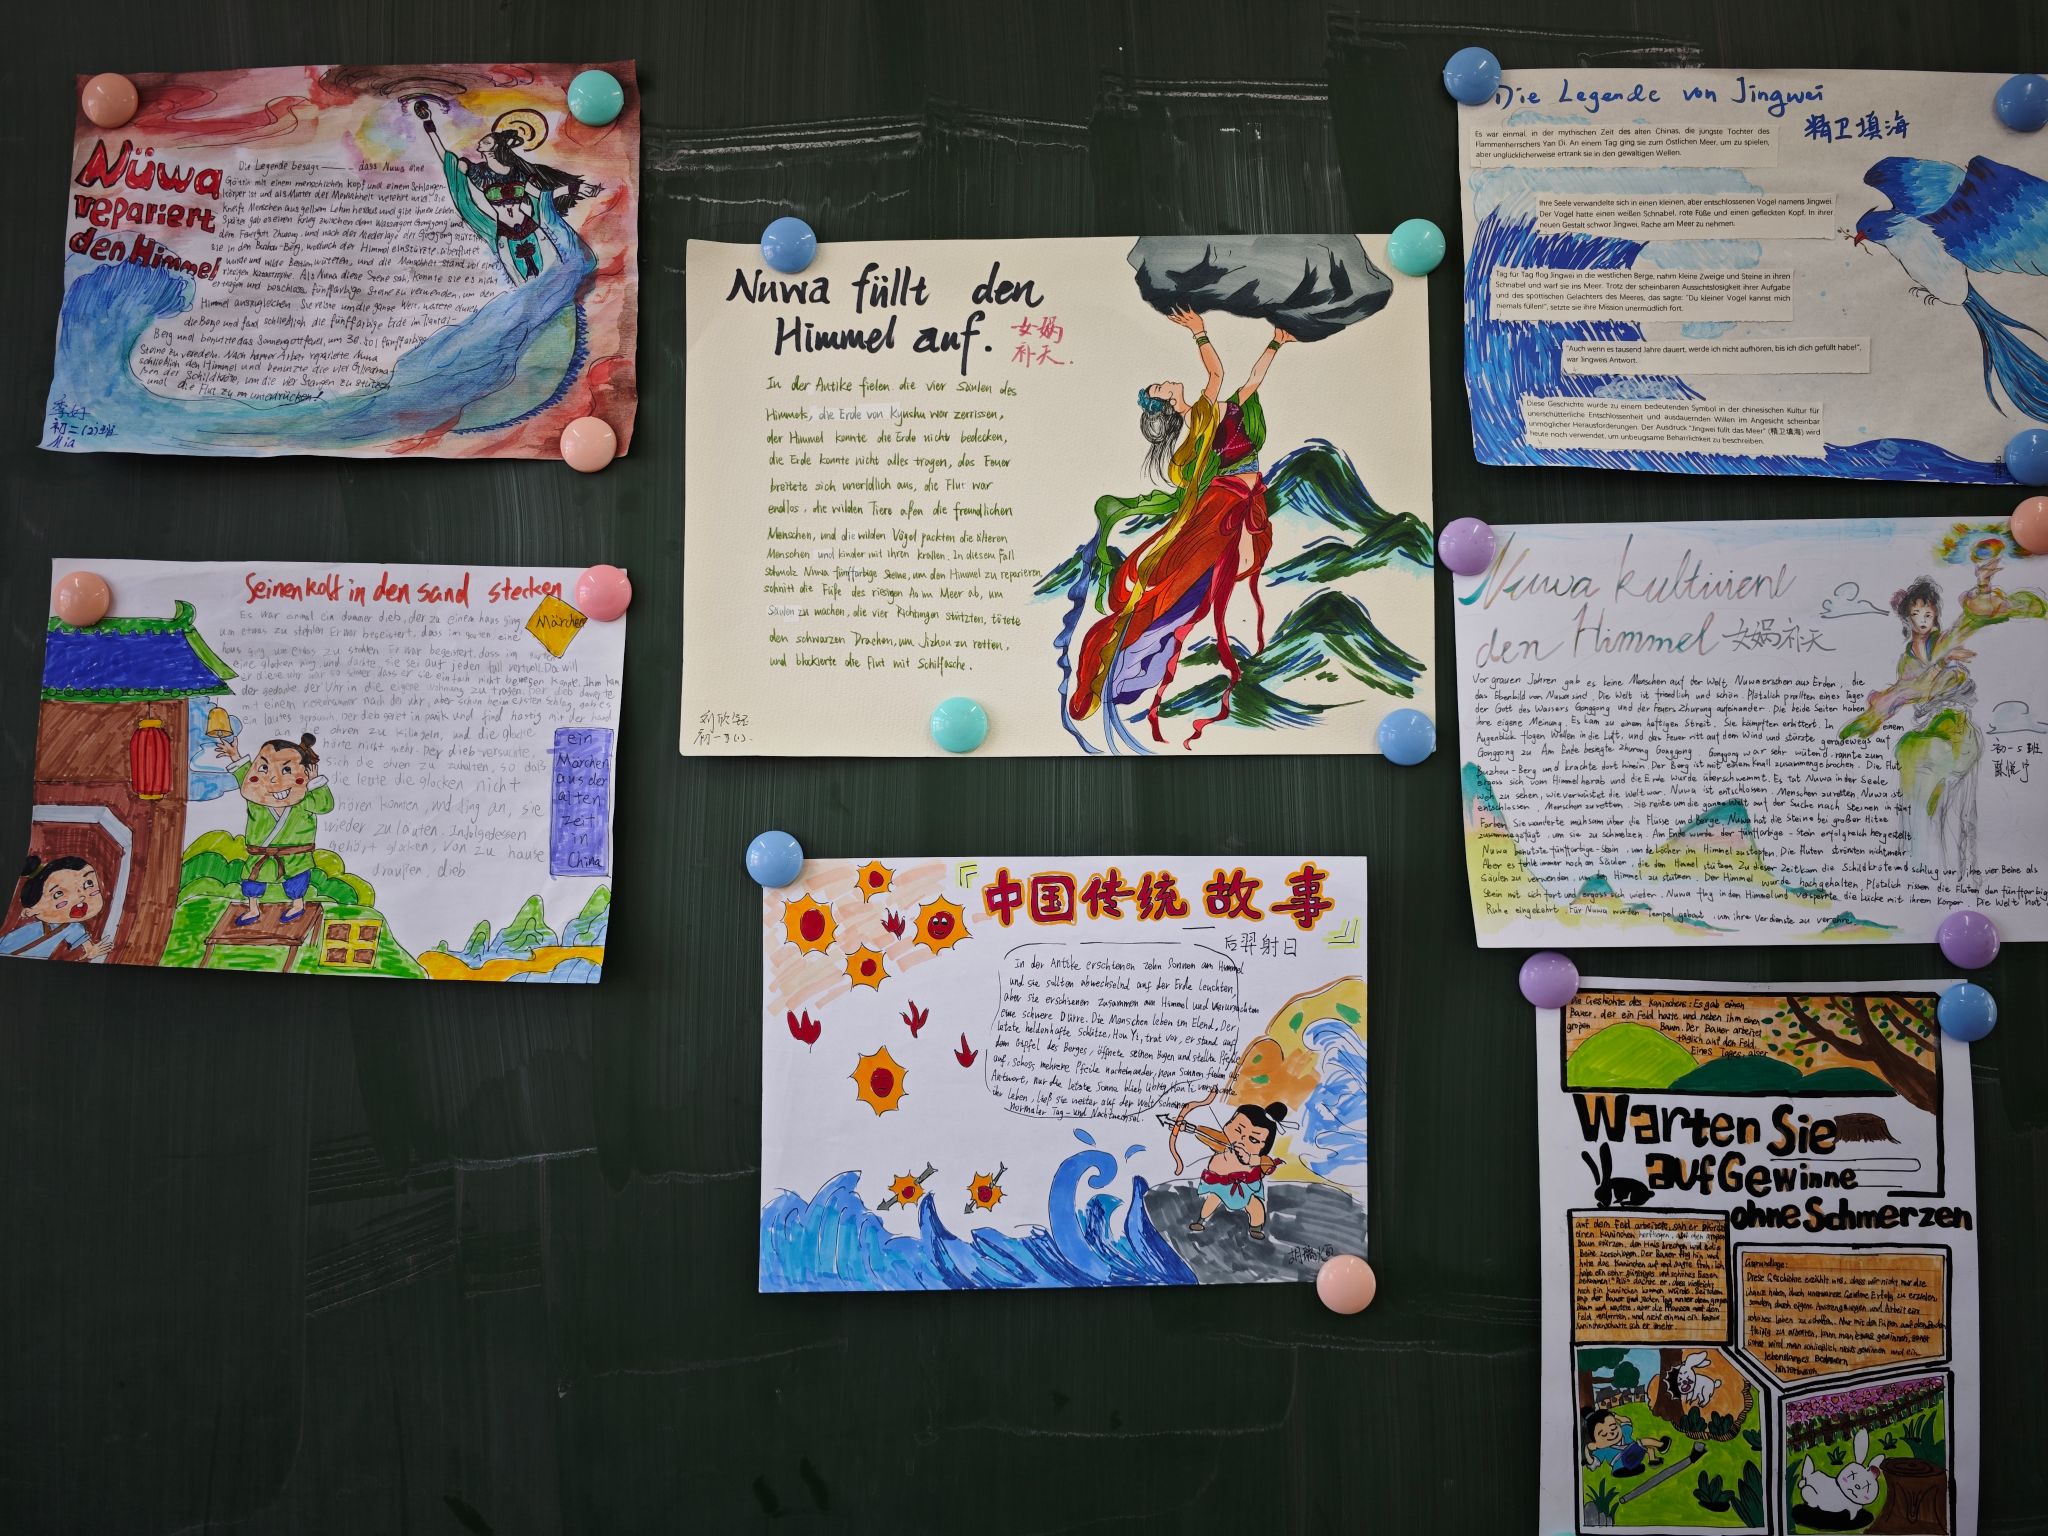 Nüwa
repariert
den Himmel
Die Legende besagt dass Nuwa eine
Göttin mit einem menschlichen Kopf und einem Schlangen-
körper ist und als Mutter der Menschheit verehrt wird. Sie
kneift Menschen aus gelbem Lehm heraus und gibt ihnen Leben.
Später gab es einen Krieg zwischen dem Wassergott Gonggong und
dem Feuergott Zhurong, und nach der Niederlage
sie in den Buzhou-Berg, wodurch der Himmel einstürzte, überflutet
wurde und wilde Bestien wüteten, und die Menschheit stand vor einer
riesigen Katastrophe. Als Nuwa diese Szene sah, konnte sie es nicht
ertragen und beschloss, fünffarbige Steine zu verwenden, um den
Himmel auszugleichen. Sie reiste um die ganze Welt, watete durch
die Berge und fand schließlich die fünffarbige Erde im Tiantai-
Berg und benutzte das Sonnengottfeuer, um 36.501 fünffarbige
Steine zu veredeln. Nach harter Arbeit reparierte Nuwa
schließlich den Himmel und benutzte die vier Gliedma-
ßen der Schildkröte, um die vier Stangen zu stützen
und die Flut zu unterdrücken!
初二(2)班
Mia
Seinen kolt in den sand stecken
Märchen
Es war enmal ein dummer dieb, der zu einem haus ging
um etwas zu stohlen Er war begeistert, dass im garten eine
haus ging, um etwas zu stohlen Er war begeistert, dass im garten
eine glocken hing, und dachte, sie sei auf jeden fall vertvoll. Da will
er diese uhr war so schwer dass er sie einfach nicht bewegen konnte. Ihm kam
der gedanke, der Uhr in die eigene wohnung zu tragen. Der dieb
mit einem hammer nach der uhr, aber schon beim ersten schlag, gab es
ein lautes geräusch. Der dieb geriet in panik und find hastig mit der hand
an die ohren zu klingeln, und die glocke
hörte nicht mehr. Der dieb versuchte,
sich die ohren zu zuhalten, so daß
die leute die glocken nicht
hören konnten, und fing an, sie
wieder zu läuten. Infolgedessen
gehört glocken, von zu hause
draußen, dieb
ein
Märchen
aus der
alten
zeit
in
China
Nuwa füllt den
Himmel auf.
女娲
补天.
In der Antike fielen die vier Säulen des
Himmels, die Erde von Kyushu war zerrissen,
der Himmel konnte die Erde nicht bedecken,
die Erde konnte nicht alles tragen, das Feuer
breitete sich unerldlich aus, die Flut war
endlos, die wilden Tiere aßen die freundlichen
Menschen, und die wilden Vögel packten die älteren
Menschen und kinder mit ihren krallen. In diesem Fall
schmolz Nuwa fünffarbige Steine, um den Himmel zu reparieren,
schnitt die Füße des riesigen Ao im Meer ab, um
Säulen zu machen, die vier Richtungen stützten, tötete
den schwarzen Drachen, um Jizhou zu retten,
und blockierte die Flut mit Schilfasche.
刘欣
中国传统故事
后羿射日
In der Antike erschienen zehn Sonnen am Himmel
und sie sollten abwechselnd auf der Erde leuchten,
aber sie erschienen zusammen am Himmel und verursachten
eine schwere Dürre. Die Menschen leben im Elend, Der
letzte heldenhafte Schütze, Hou Yi, trat vor, er stand auf
dem Gipfel des Berges, öffnete seinen Bogen und stellte Pfeile
auf, schoss mehrere Pfeile nacheinander, neun Sonnen fielen als
Antwort, nur die letzte Sonne blieb übrig, Hou Yi verschonte
ihr Leben, ließ sie weiter auf der Welt scheinen
normaler Tag- und Nachtwechsel.
Die Legende von Jingwei
精卫填海
Es war einmal, in der mythischen Zeit des alten Chinas, die jüngste Tochter des
Flammenherrschers Yan Di. An einem Tag ging sie zum Östlichen Meer, um zu spielen,
aber unglücklicherweise ertrank sie in den gewaltigen Wellen.
Ihre Seele verwandelte sich in einen kleinen, aber entschlossenen Vogel namens Jingwei.
Der Vogel hatte einen weißen Schnabel, rote Füße und einen gefleckten Kopf. In ihrer
neuen Gestalt schwor Jingwei, Rache am Meer zu nehmen.
Tag für Tag flog Jingwei in die westlichen Berge, nahm kleine Zweige und Steine in ihren
Schnabel und warf sie ins Meer. Trotz der scheinbaren Aussichtslosigkeit ihrer Aufgabe
und des spöttischen Gelächters des Meeres, das sagte: "Du kleiner Vogel kannst mich
niemals füllen!", setzte sie ihre Mission unermüdlich fort.
"Auch wenn es tausend Jahre dauert, werde ich nicht aufhören, bis ich dich gefüllt habe!",
war Jingweis Antwort.
Diese Geschichte wurde zu einem bedeutenden Symbol in der chinesischen Kultur für
unerschütterliche Entschlossenheit und ausdauernden Willen im Angesicht scheinbar
unmöglicher Herausforderungen. Der Ausdruck "Jingwei füllt das Meer" (精卫填海) wird
heute noch verwendet, um unbeugsame Beharrlichkeit zu beschreiben.
Nuwa kultiviert
den Himmel 女娲补天
Vor grauen Jahren gab es keine Menschen auf der Welt, Nuwa erschien aus Erden, die
das Ebenbild von Nuwa sind. Die Welt ist friedlich und schön. Plötzlich prallten eines Tages
der Gott des Wassers Gonggong und der Feuers Zhurong aufeinander. Die beide Seiten haben
ihre eigene Meinung. Es kam zu einem haftigen Streit. Sie kämpften erbittert. In einem
Augenblick flogen Wellen in die Luft, und der Feuer ritt auf dem Wind und stürzte geradewegs auf
Gonggong zu. Am Ende besiegte Zhurong Gonggong. Gonggong war sehr wütend, rannte zum
Buzhou-Berg und krachte dort hinein. Der Berg ist mit einem Knall zusammengebrochen. Die Flut
ergoss sich vom Himmel herab und die Erde wurde überschwemmt. Es tat Nuwa in der Seele
weh zu sehen, wie verwüstet die Welt war. Nuwa ist entschlossen, Menschen zu retten. Nuwa ist
entschlossen, Menschen zu retten. Sie reiste um die ganze Welt auf der Suche nach Steinen in fünf
Farben. Sie wanderte mühsam über die Flüsse und Berge. Nuwa hat die Steine bei großer Hitze
zusammengefügt, um sie zu schmelzen. Am Ende wurde der fünffarbige-Stein erfolgreich hergestellt.
Nuwa benutzte fünffarbige-Stein, um die Löcher im Himmel zu stopfen. Die Fluten strömten nicht mehr.
Aber es fehlte immer noch an Säulen, die den Himmel stützen. Zu dieser Zeit kam die Schildkröte und schlug vor, ihre vier Beine als
Säulen zu verwenden, um den Himmel zu stützen. Der Himmel wurde hochgehalten. Plötzlich rissen die Fluten den fünffarbigen
Stein mit sich fort und ergoss sich wieder. Nuwa flog in den Himmel und versperrte die Lücke mit ihrem Körper. Die Welt hat
Ruhe eingekehrt. Für Nuwa wurden Tempel gebaut, um ihre Verdienste zu verehren.
初一5班
Die Geschichte des Kaninchens: Es gab einen
Bauer, der ein Feld hatte und neben ihm einen
großen Baum. Der Bauer arbeitet
täglich auf dem Feld.
Eines Tages, als er
Warten Sie
auf Gewinne
ohne Schmerzen
auf dem Feld arbeitete, sah er
einen Kaninchen herfliegen, auf den
Baum stürzen, den Hals brechen und die
Beine zerschlagen. Der Bauer ging hin und
hob das Kaninchen auf und sagte froh, Ich
Grundlage:
Diese Geschichte erzählt uns, dass wir nicht nur die
sondern durch eigene Anstrengungen und Arbeit ein
schönes Leben zu schaffen. Nur mit den Füßen auf dem Boden
fleißig zu arbeiten, kann man etwas gewinnen, sonst
wird man schließlich nichts gewinnen und ein
lebenslanges Bedauern
hinterlassen